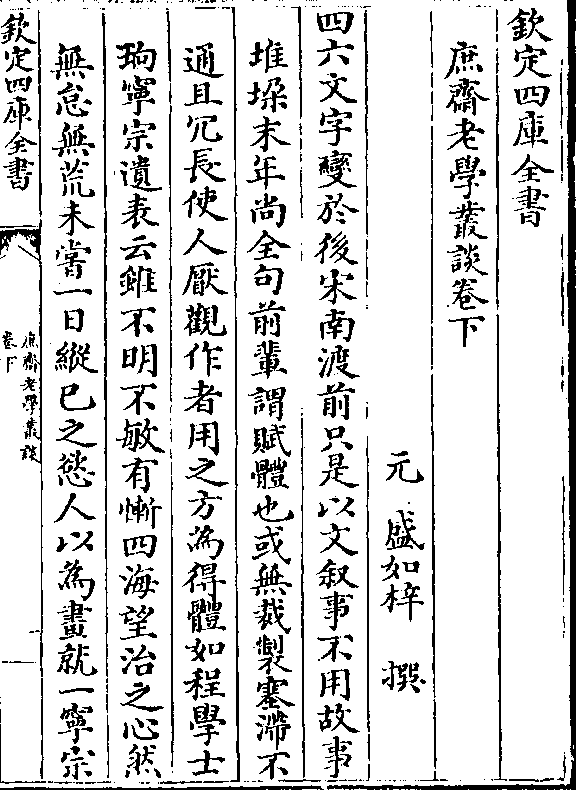 欽定四庫全書
庶齋老學叢談卷下
元　盛如梓　撰
四六文字變於後宋南渡前只是以文叙事不用故事
堆垜末年尚全句前輩謂賦體也或無裁製塞滯不
通且冗長使人厭觀作者用之方為得體如程學士
珦寧宗遺表云雖不明不敏有慚四海望治之心然
無怠無荒未嘗一日縱已之慾人以為畫就一寧宗
欽定四庫全書
庶齋老學叢談
卷下